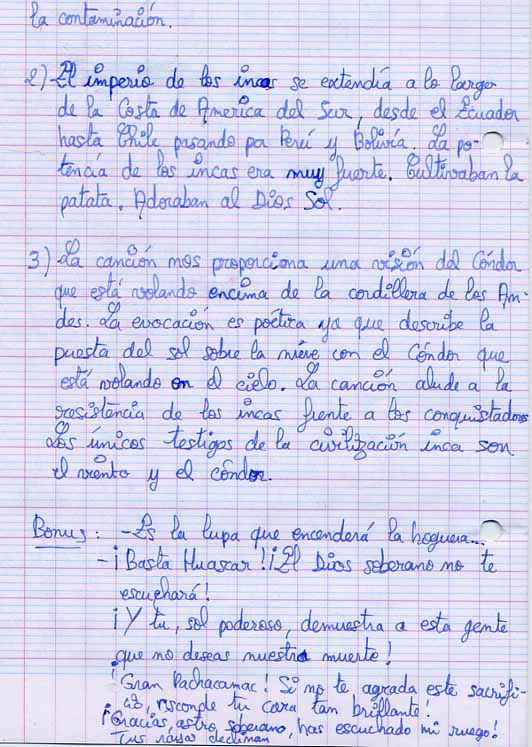 la contaminación.
2) El imperio de los incas se extendía a lo largo
de la Costa de America del Sur, desde el Ecuador
hasta Chile pasando por Perú y Bolivia. La po-
tencia de los incas era muy fuerte. Cultivaban la
patata. Adoraban al Dios Sol.
3) La canción nos proporciona una visión del Cóndor
que está volando encima de la cordillera de los An-
des. La evocación es poética ya que describe la
puesta del sol sobre la nieve con el Cóndor que
está volando en el cielo. La canción alude a la
resistencia de los incas frente a los conquistadores
Los únicos testigos de la civilización inca son
el viento y el cóndor.
Bonus : - Es la lupa que encenderá la hoguera...
- ¡Basta Huascar! ¡El Dios soberano no te
escuchará!
¡Y tu, sol poderoso, demuestra a esta gente
que no deseas nuestra muerte!
¡Gran Pachacamac! Si no te agrada este sacrifi-
cio, esconde tu cara tan brillante!
¡Gracias, astro soberano, has escuchado mi ruego!
Tus rayos declinan